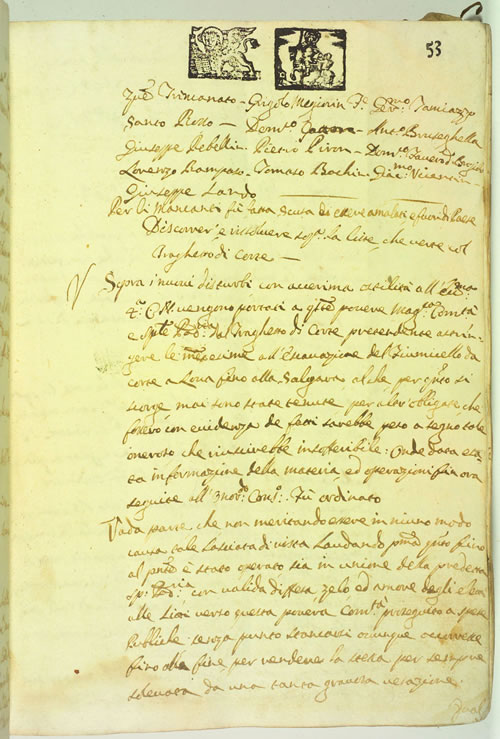 53
Trincanato - Angolo Megiorin
Santo Rosso - Dom.co - Ant.o Bruseghella
Giuseppe Bebellin. Pietro Piron - Dom.co
Lorenzo Rampaso. Tomaso Bachin. Giac.mo Vicentin
Giuseppe Lando
Per li Mancanti fù fatta scusa di essere amalati e fuori di Paese
Discorrer, e rissolvere sop.a la lite, che verte col
Traghetto di Corte
Sopra i nuovi disturbi con acerima ostilità all'
vengono portati a q.ta povera Mag.ca Com.tà
e dal Traghetto di Corte pretendente astrin-
gere le medesime all'Escavazione del Fiumicello da
Corte a Lova fino alla Salgara al che per q.nto si
scorge mai sono state tenute, per altro obligate, che
fossero con evidenza de fatti sarebbe peso a segno tale
oneroso che riuscirebbe insoffribile: Onde data esa-
ta informazione della materia, ed operazioni fin ora
seguite all' Con.o: Fù ordinato
Vada parte che non meritando essere in niuno modo
causa tale lasciata di vista Laudando p.ma q.nto fino
al p.nte è stato operato sia in unione della predetta
con valida diffesa, zelo ed amore degli
alle liti verso questa povera Com.tà proseguito a spese
Publiche senza punto stancarsi ovunque occorresse
fino alla fine per rendere la stessa per sempre
solevata da una tanta gravosa vesazione.